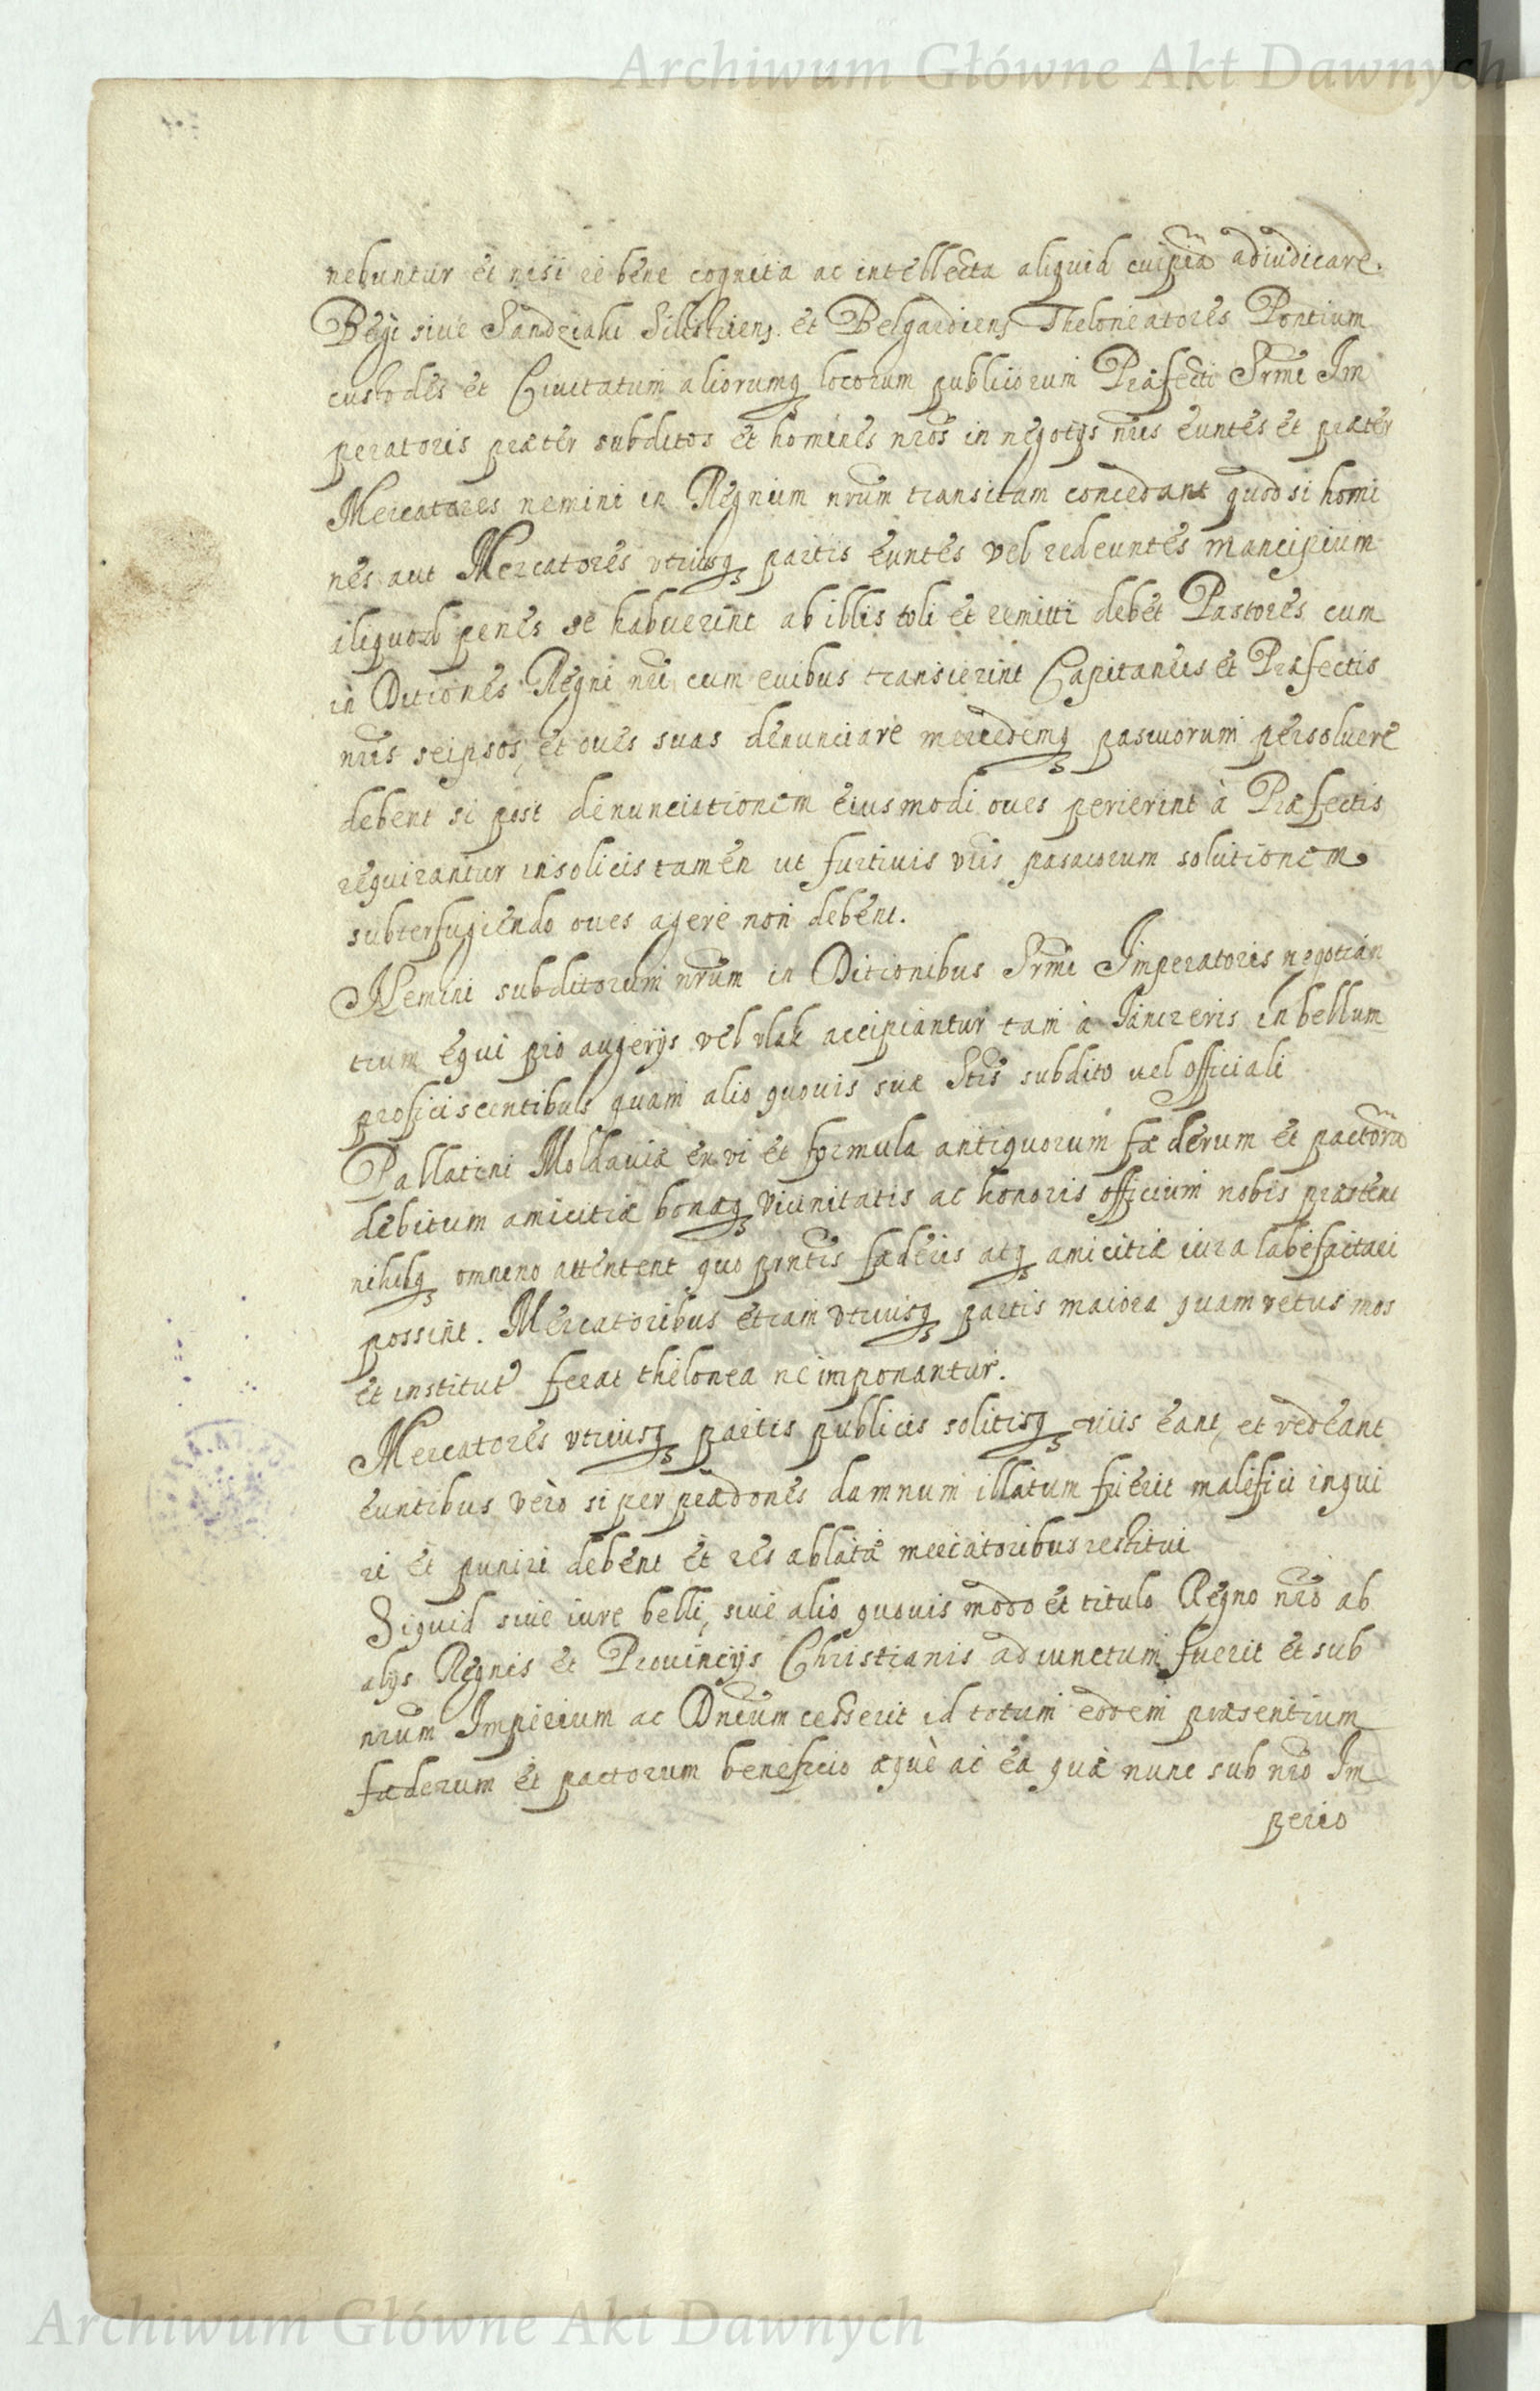 Archiwum Główne Akt Dawnych
nebuntur et nisi re bene cognita ac intellecta aliquid cuipiã adiudicare.
Begi siue Sandziaki Silistriens. et Belgardiens Theloneatores Pontium
custodes et Ciuitatum aliorumq locorum publicorum Præfecti Srmi Im
peratoris præter subditos et homines nros in negotys nris euntes et præter
Mercatores nemini in Regnum nrum transitum concedant quod si homi
nes aut Mercatores vtriusq partis euntes vel redeuntes mancipium
aliquod penes se habuerint ab illis toli et remitti debet Pastores cum
in Ditiones Regni nri cum ouibus transierint Capitaneis et Præfectis
nris seipsos, et oues suas denunciare mercedemq pascuorum persoluere
debent si post denunciationem eiusmodi oues perierint à Præfectis
requirantur insolicis tamen ut furtiuis viis pascuorum solutionem
subterfugiendo oues agere non debent.
Nemini subditorum nrum in Ditionibus Srmi Imperatoris negotian
tium equi pro augerys vel vlak accipiantur tam à Janczeris in bellum
proficiscentibus quam alio quouis suæ Stis subdito uel officiali
Pallatini Moldauiæ ex vi et formula antiquorum fæderum et pactorũ
debitum amicitiæ bonæq vicinitatis ac honoris officium nobis præstent
nihilq omnino attentent quo prntis fæderis atq amicitiæ iura labefactari
possint. Mercatoribus etiam vtriusq partis maiora quam vetus mos
et institut' ferat thelonea ne imponantur.
Mercatores vtriusq partis publicis solitisq viis eant, et redeant
euntibus vero si per prædones damnum illatum fuerit malefici inqui
ri et puniri debent et res ablatæ mercatoribus restitui
Siquid siue iure belli, siue alio quouis modo et titulo Regno nro ab
alys Regnis et Prouincys Christianis adiunctum fuerit et sub
nrum Imperium ac Dnium cesserit id totum eodem præsentium
fæderum et pactorum beneficio æquè ac ea quæ nunc sub nro Im
perio
Archiwum Główne Akt Dawnych